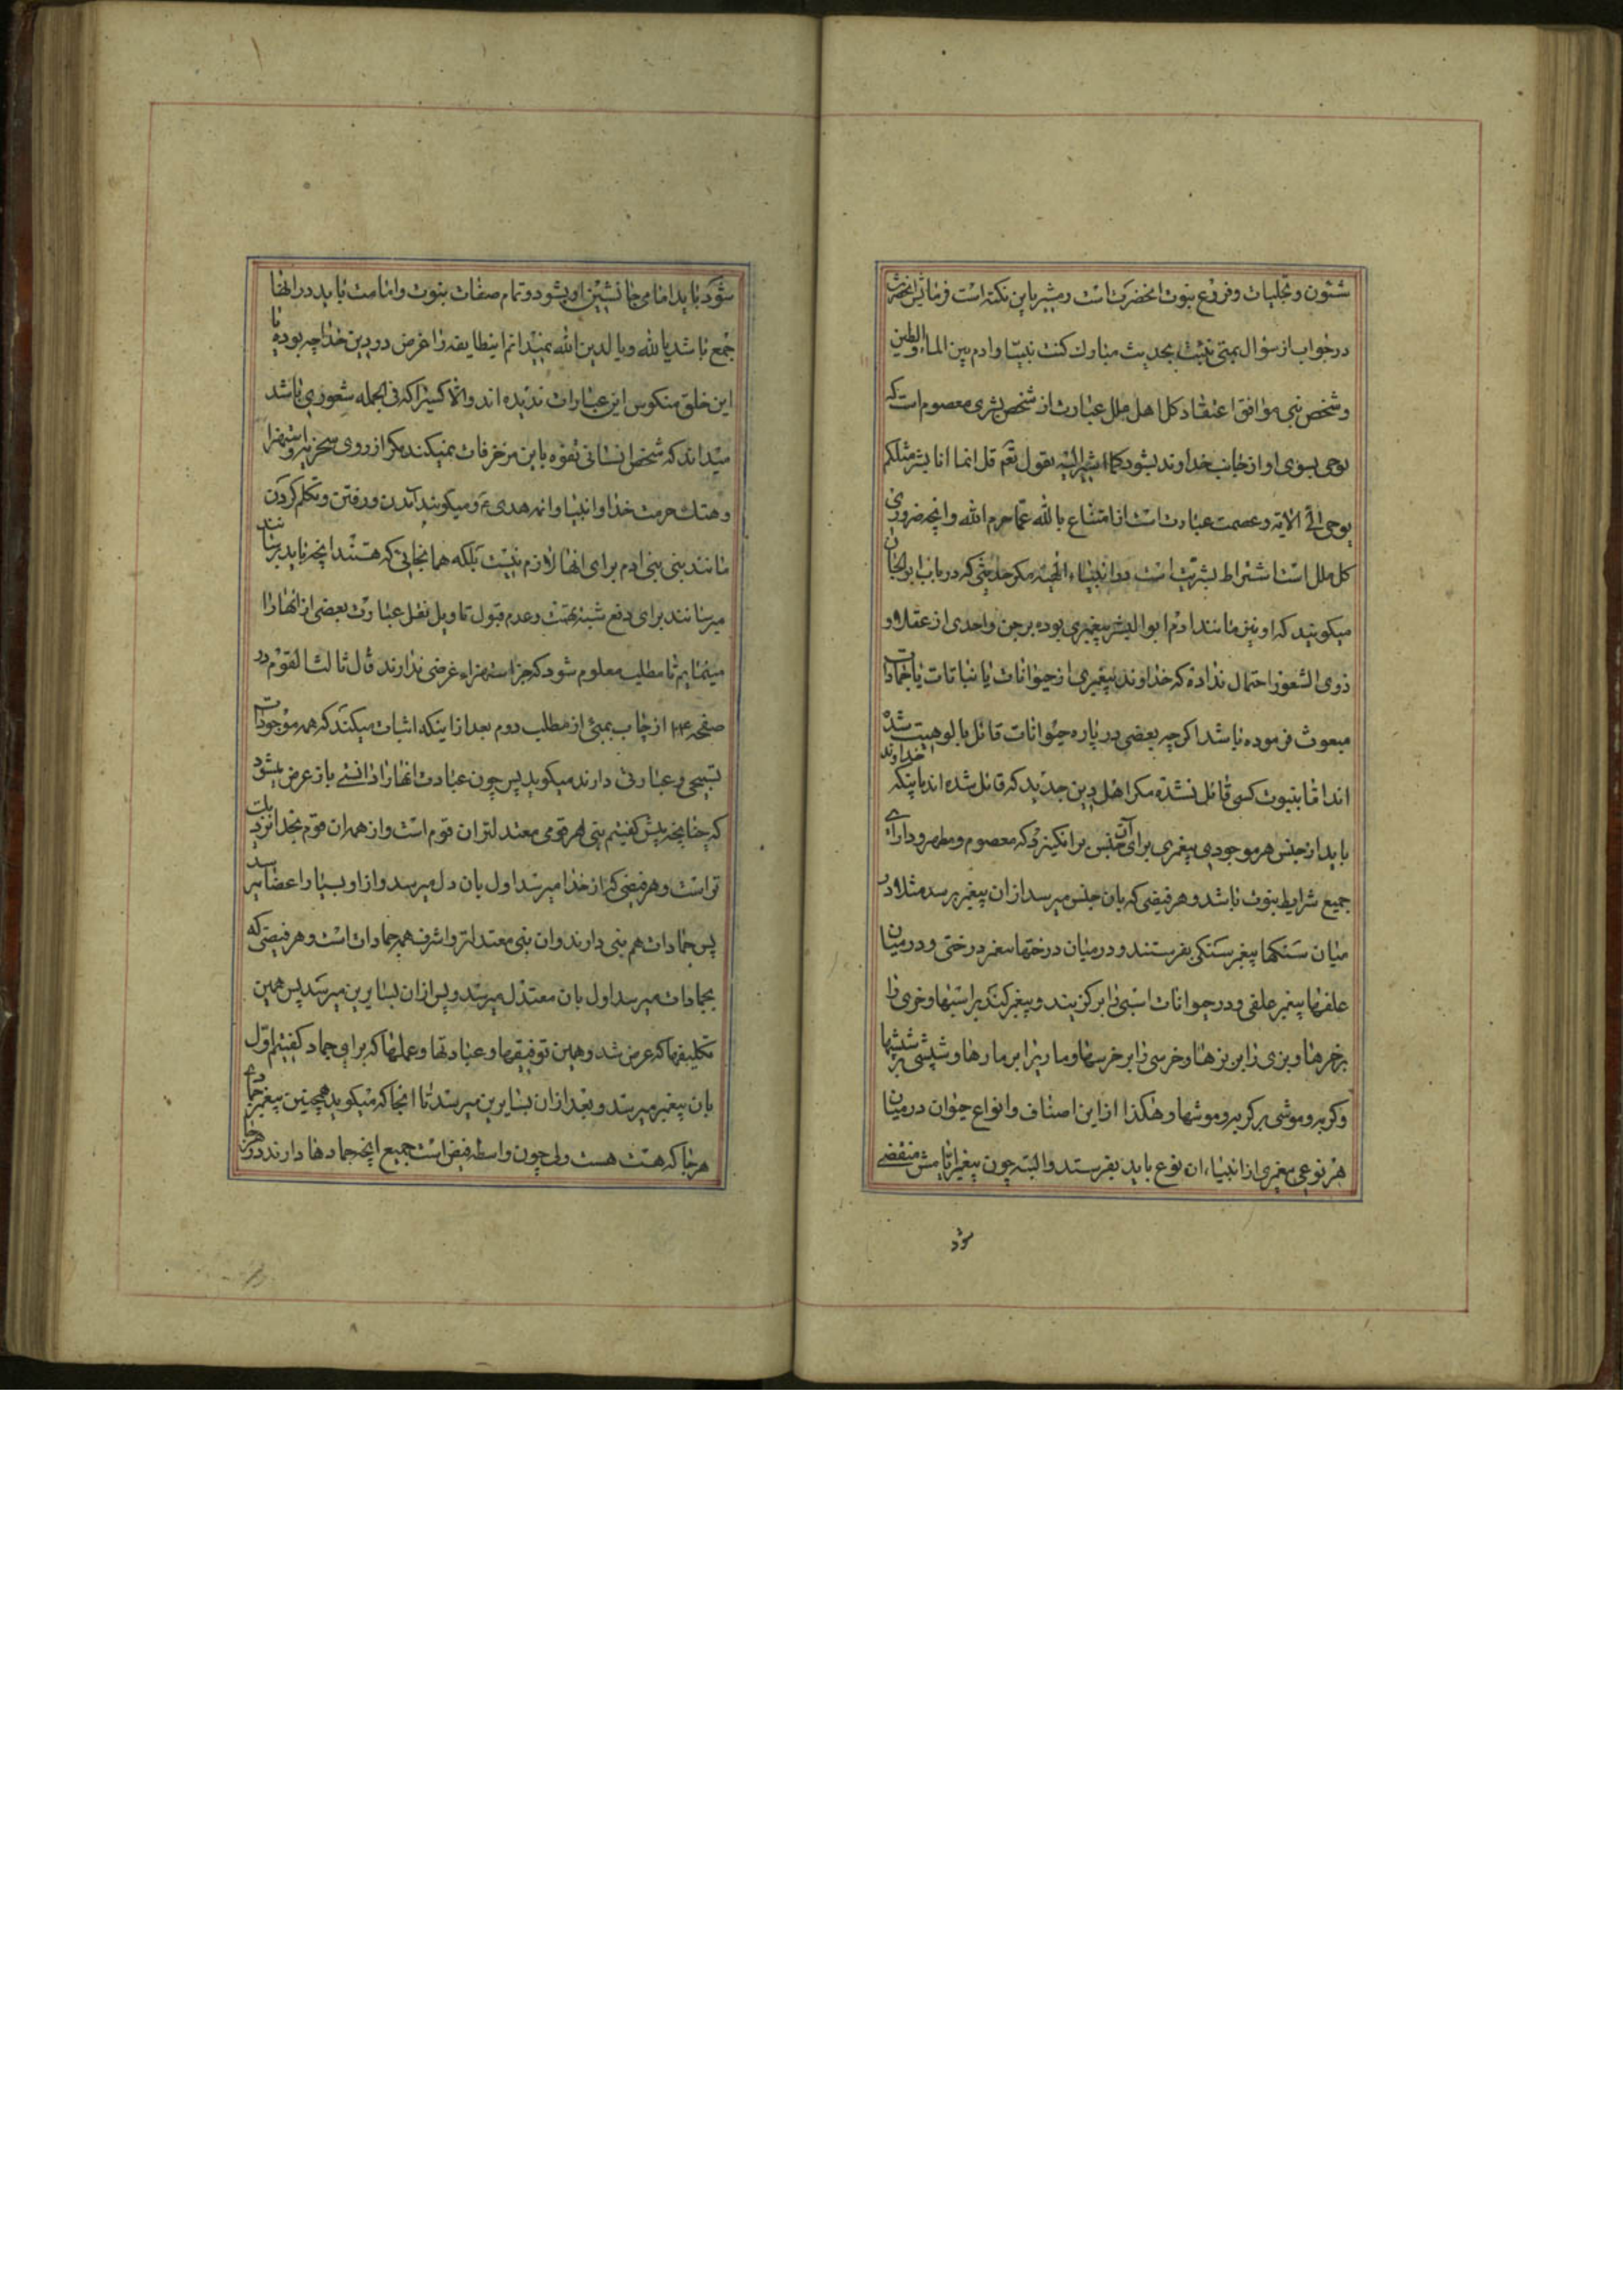 شئون و تجلیات و فروع نبوت انحضرت است و مشیر باین نکته است فرمایش انحضرت
در جواب از سؤال بمتی نبئت بحدیث مبارك کنت نبیا و ادم بین الماء والطین
و شخص نبی موافق اعتقاد کل اهل ملل عبارت از شخص بشری معصوم است که
بوحی بسوی او از جانب خداوند بشود کما اشیر الیه بقوله تعم قل انما انا بشر مثلکم
یوحی الی الایة و عصمت عبارت است از امتناع بالله عما حرم الله و انچه ضروری
کل ملل است اشتراط بشریت است در انبیاء الهیه مکر حدیثی که در باب ابو الجان
میکویند که او نیز مانند ادم ابوالبشر پیغمبری بوده بر جن و احدی از عقلاء و
ذوی الشعور احتمال نداده که خداوند پیغمبری از حیوانات یا نباتات یا جمادات
مبعوث فرموده باشد اکر چه بعضی در باره حیوانات قائل بالوهیت شده
اند اما بنبوت کسی قائل نشده مکر اهل دین جدید که قائل شده اند باینکه خداوند
باید از جنس هر موجودی پیغمبری برای آن جنس برانکیزد که معصوم و مطهر و دارای
جمیع شرایط نبوت باشد و هر فیضی که بان جنس میرسد از ان پیغمبر برسد مثلا در
میان سنکها پیغمبر سنکی بفرستند و در میان درختها پیغمبر درختی و در میان
علفها پیغمبر علفی و در حیوانات اسبی را برکزیند و پیغمبر کند بر اسبها و خری را
بر خرها و بزی را بر بزها و خرسی را بر خرسها و ماریرا بر مارها و شپشی بر شپشها
و کربه و موشی بر کربه و موشها و هکذا از این اصناف و انواع حیوان در میان
هر نوعی پیغمبری از انبیاء ان نوع باید بفرستد و البته چون پیغمبر ایامش منقضی
شود
شود باید امامی جانشین او بشود و تمام صفات نبوت و امامت باید در انها
جمع باشد یا لله و یا لدین الله نمیدانم اینطایفه را غرض در دین خدا چه بوده یا
این خلق منکوس این عبارات ندیده اند والا کسیرا که فی الجمله شعوری باشد
میداند که شخص انسانی تفوه باین مزخرفات نمیکند مکر از روی سخریه و استهزا
و هتك حرمت خدا و انبیا و ائمه هدی ع و میکویند آمدن و رفتن و تکلم کردن
مانند نبی بنی ادم برای انها لازم نیست بلکه همانجائی که هستند انچه باید برسانند
میرسانند برای دفع شبهه تهمت و عدم قبول تاویل نقل عبارت بعضی از انها را
مینمایم تا مطلب معلوم شود که جز استهزاء غرضی ندارند قال ثالث القوم در
صفحه ۱۲۴ از چاپ بمبئی از مطلب دوم بعد از اینکه اثبات میکند که همه موجودات
تسبیحی و عبادتی دارند میکوید پس چون عبادت انها را دانستی باز عرض میشود
که چنانچه پیش کفیتم نبی هر قومی معتدلتر ان قوم است و از همه ان قوم بخدا نزدیك
تر است و هر فیضی که از خدا میرسد اول بان دل میرسد و از او بسیار اعضا میرسد
پس جمادات هم نبی دارند و ان نبی معتدلتر و اشرف همه جمادات است و هر فیضی که
بجمادات میرسد اول بان معتدل میرسد و پس از ان بسایرین میرسد پس همین
تکلیفها که عرض شد و همین توفیقها و عبادتها و عملها که برای جماد کفیتم اول
بان پیغمبر میرسد و بعد از ان بسایرین میرسد تا انجا که میکوید همچنین پیغمبر جمادی
هر جا که هست هست ولی چون واسطه فیض است جمیع انچه جمادها دارند در